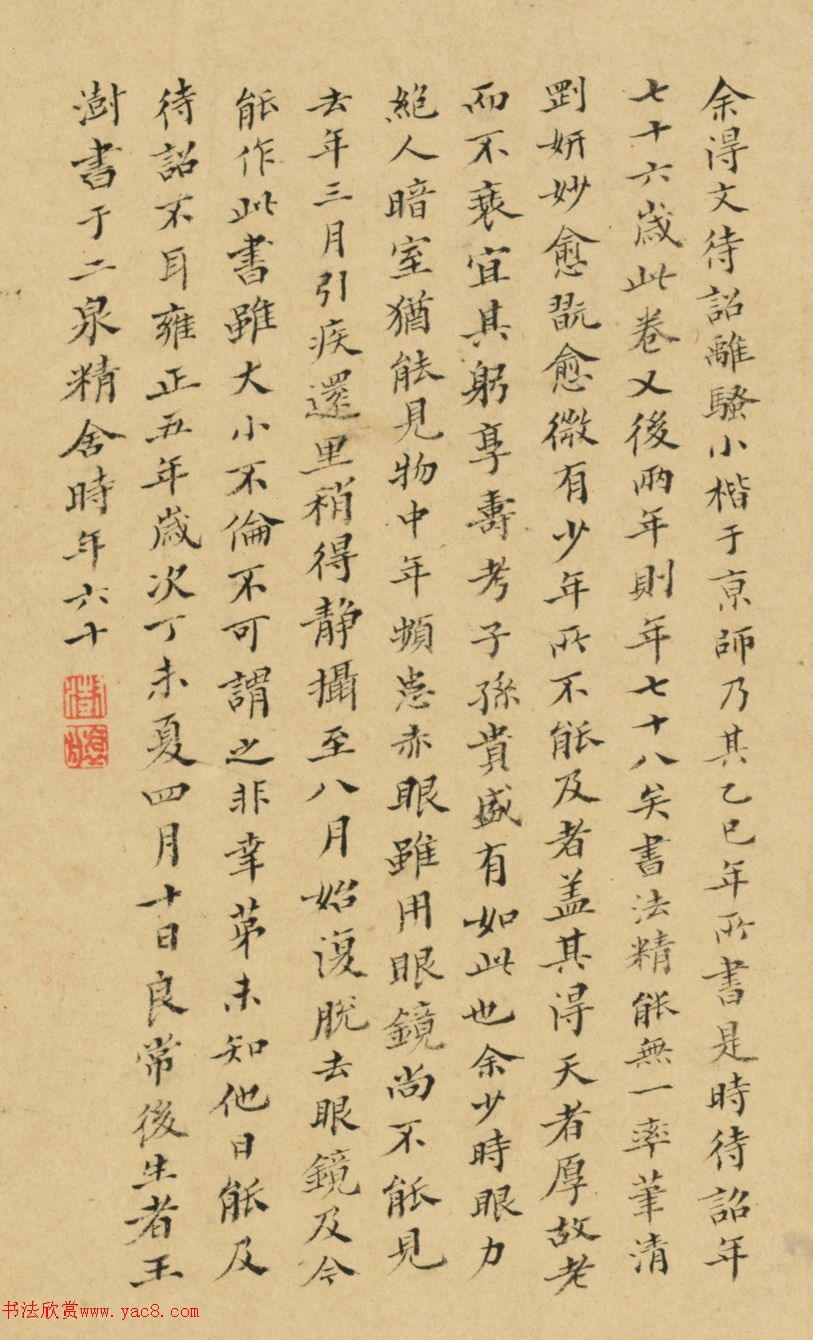 余得文待詔離騷小楷于京師乃其乙巳年所書是時待詔年
七十六歲此卷又後兩年則年七十八矣書法精能無一率筆清
劉妍妙愈翫愈微有少年所不能及者蓋其得天者厚故老
而不衰宜其躬享壽考子孫貴盛有如此也余少時眼力
絕人暗室猶能見物中年頻患赤眼雖用眼鏡尚不能見
去年三月引疾還里稍得靜攝至八月始復脫去眼鏡及今
能作此書雖大小不倫不可謂之非幸苐未知他日能及
待詔不耳雍正五年歲次丁未夏四月十日良常後生者王
澍書于二泉精舍時年六十
书法欣赏www.yac8.com